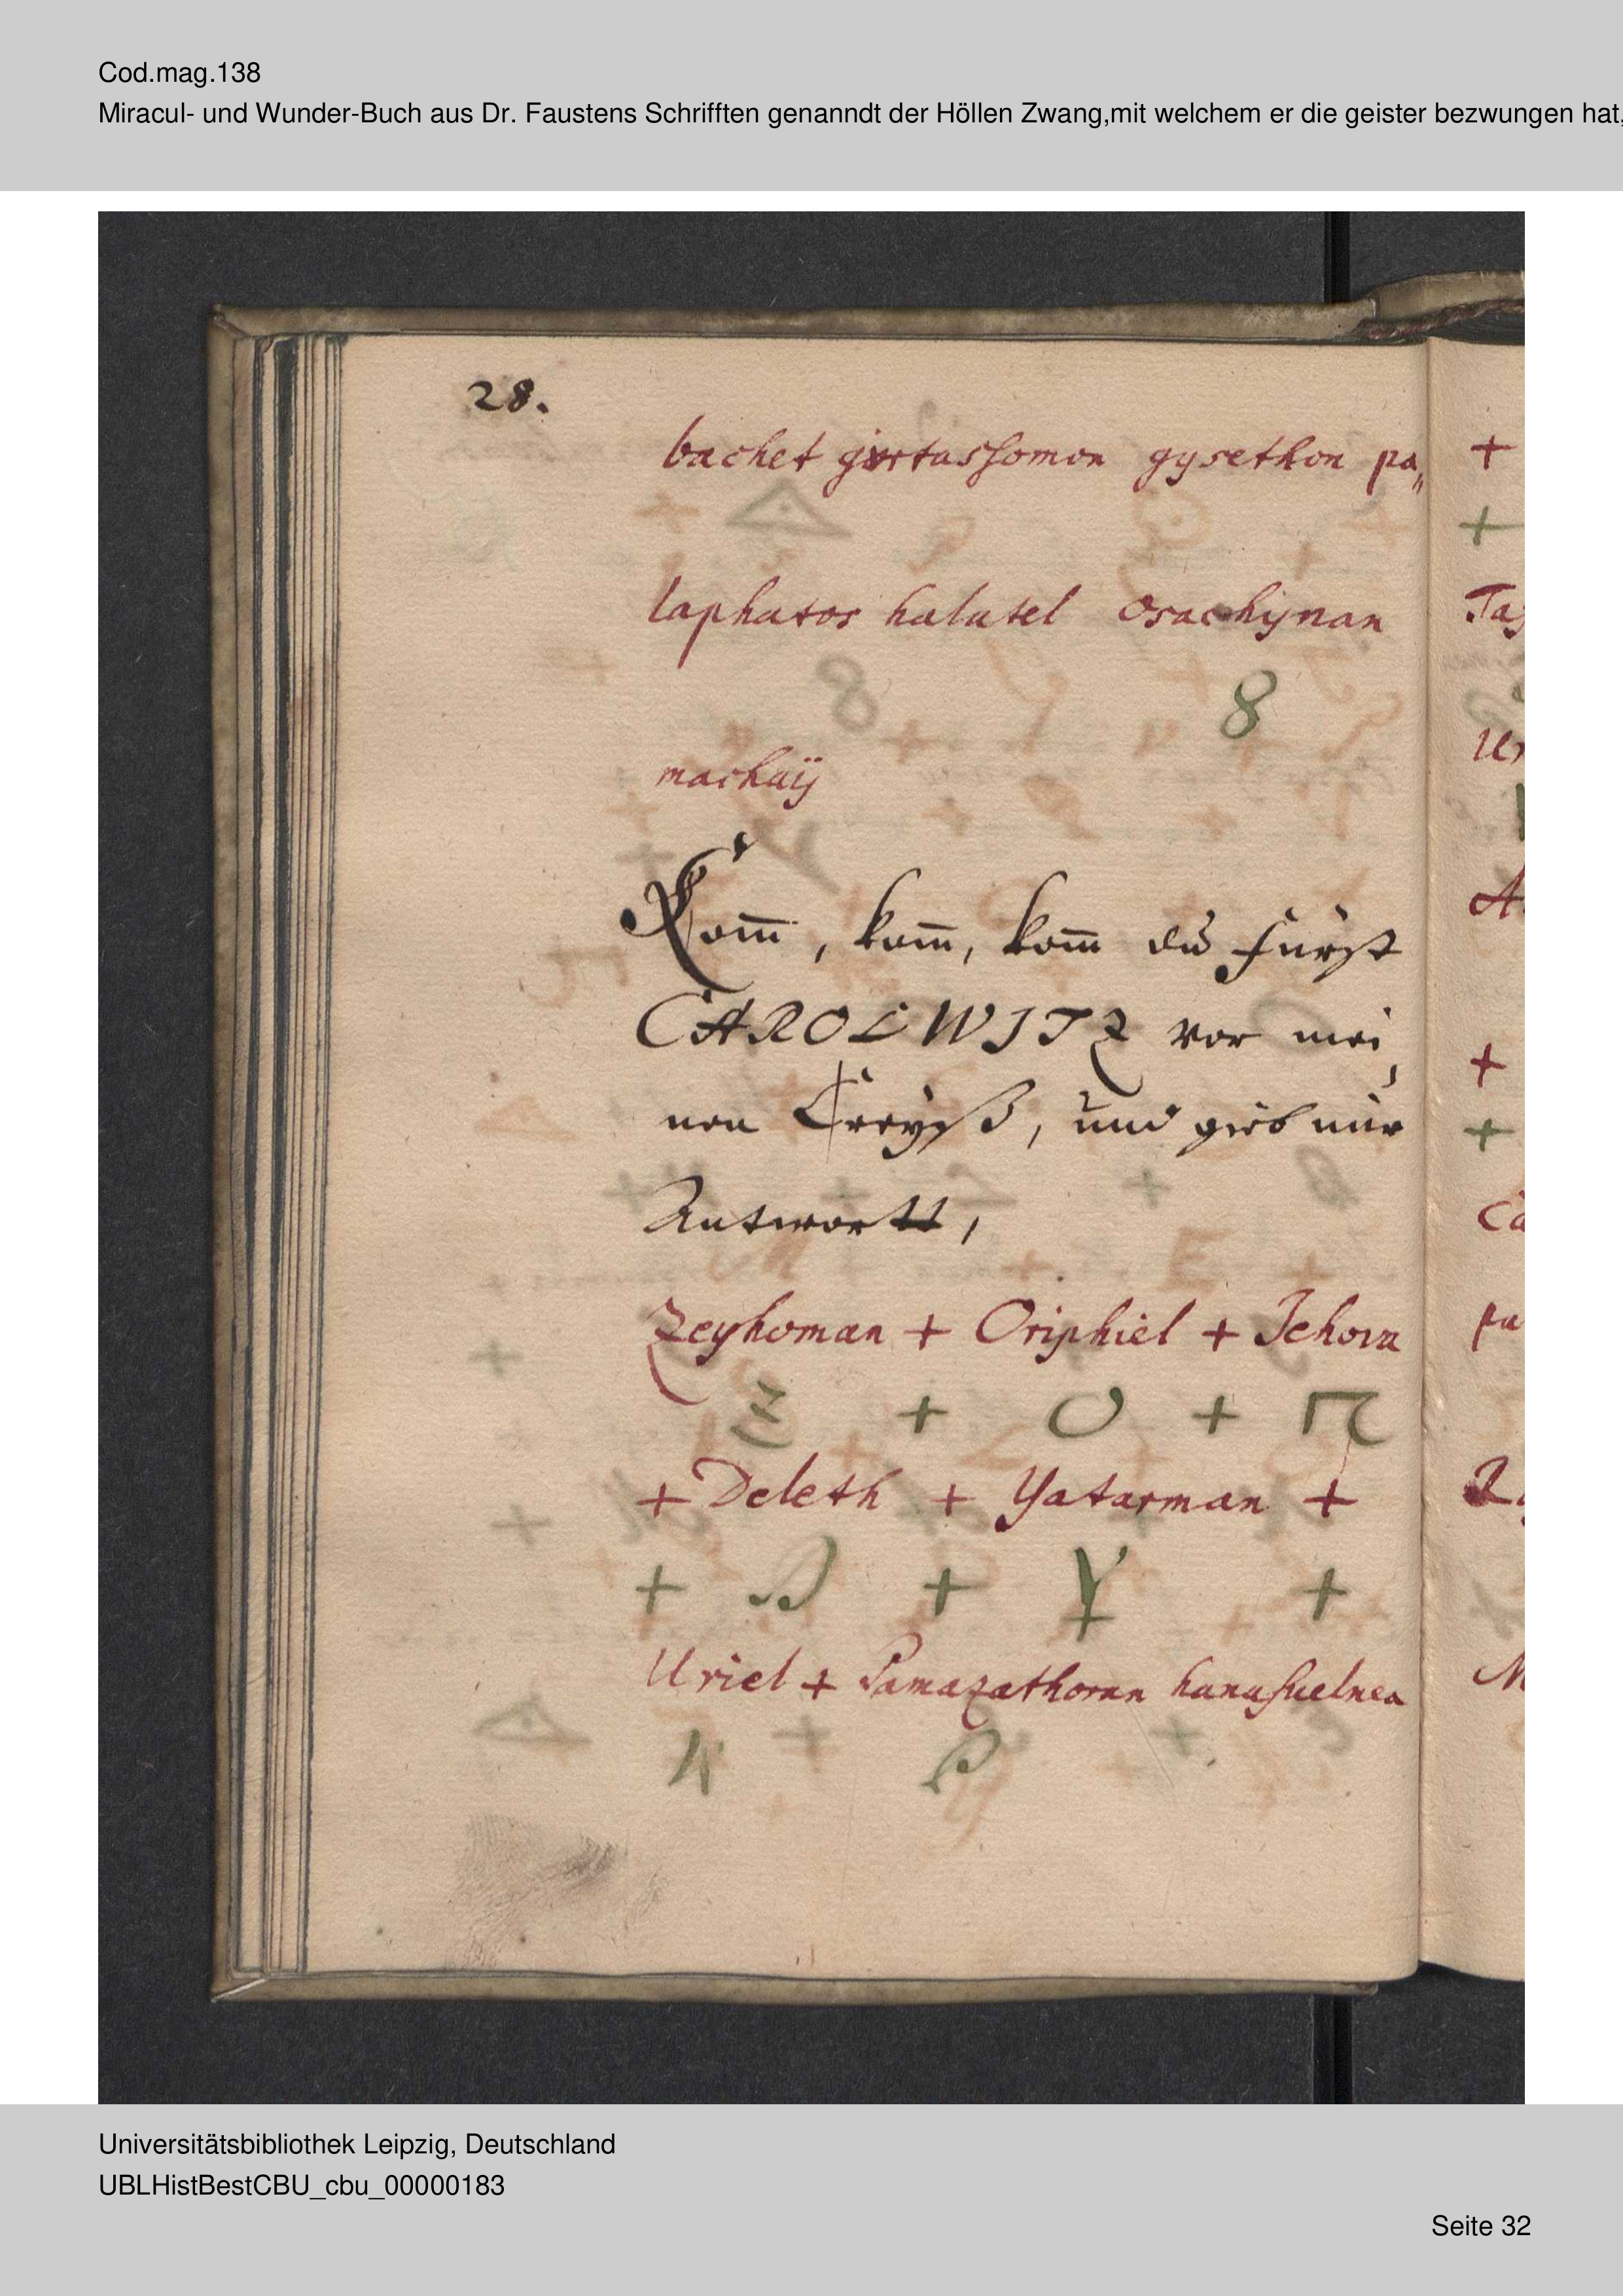 Cod.mag.138
Miracul- und Wunder-Buch aus Dr. Faustens Schrifften genanndt der Höllen Zwang,mit welchem er die geister bezwungen hat,
28.
bachet gÿrtassomon gysethon pa„
laphatos halatel osachynan
8
machaÿ
Kom̅, kom̅, kom̅ du Fürst
CAROLWITZ vor mei,
nen Creyß, und gieb mir
Antwortt,
Zeyhoman + Oriphiel + Jehova
Z + O +
+ Deleth + Yatarman +
+ D + Y +
Uriel + Pamazathoran hanasuelnea
+
+
Ta
Ur
A
+
+
Ca
pa
M
Universitätsbibliothek Leipzig, Deutschland
UBLHistBestCBU_cbu_00000183
Seite 32